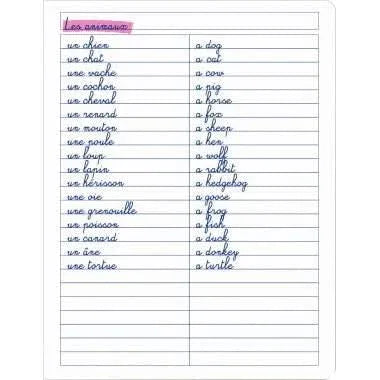 Les animaux:
un chien a dog
un chat a cat
une vache a cow
un cochon a pig
un cheval a horse
un renard a fox
un mouton a sheep
une poule a hen
un loup a wolf
un lapin a rabbit
un hérisson a hedgehog
une oie a goose
une grenouille a frog
un poisson a fish
un canard a duck
un âne a donkey
une tortue a turtle